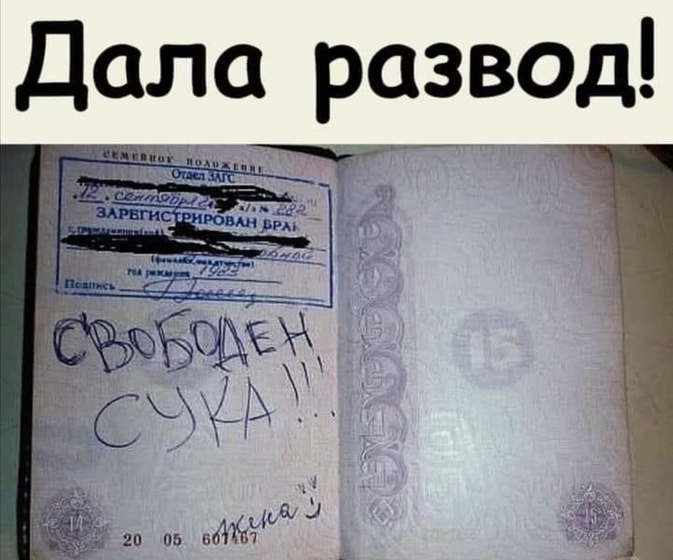 Дала развод!
СЕМЕЙНОЕ ПОЛОЖЕНИЕ
Отдел ЗАГС
12 сентября а/з № 282
ЗАРЕГИСТРИРОВАН БРАК
с гражданином(кой)
(фамилия, имя, отчество)
год рождения 1983
Подпись
СВОБОДЕН
СУКА!!!
жена
14
15
15
20 05 601167